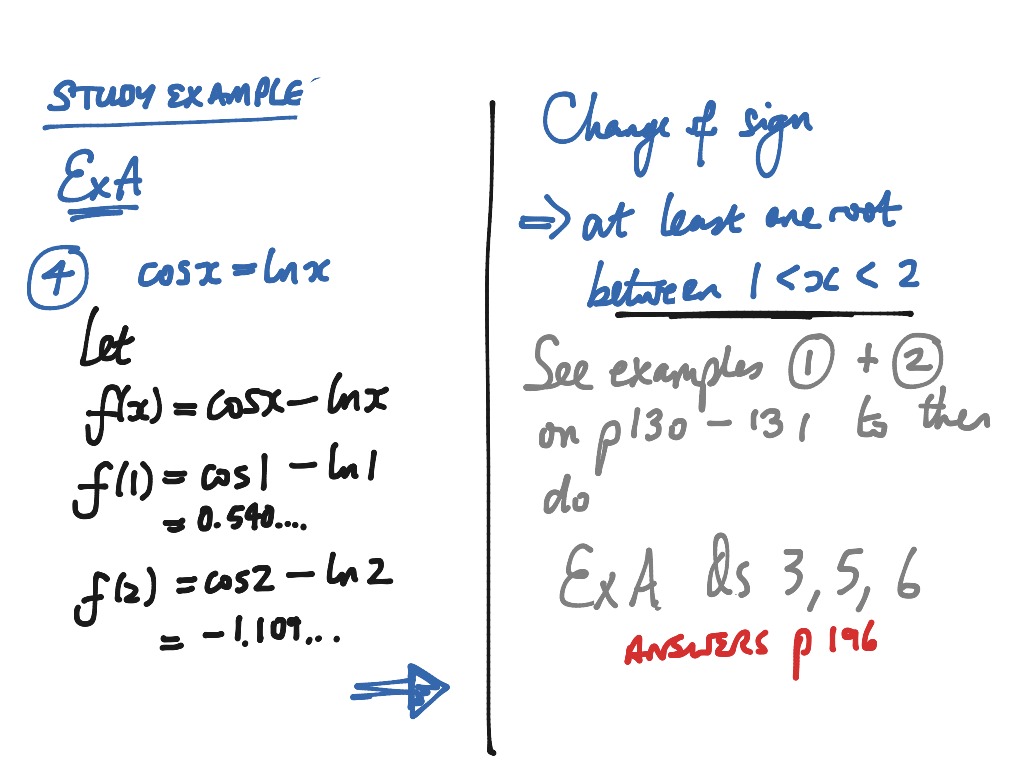 STUDY EXAMPLE
Ex A
4 cos x = ln x
Let
f(x) = cos x − ln x
f(1) = cos 1 − ln 1
= 0.540....
f(2) = cos 2 − ln 2
= −1.109...
Change of sign
⇒ at least one root
between 1 < x < 2
See examples 1 + 2
on p130 − 131 to then
do
Ex A Qs 3, 5, 6
ANSWERS p 196